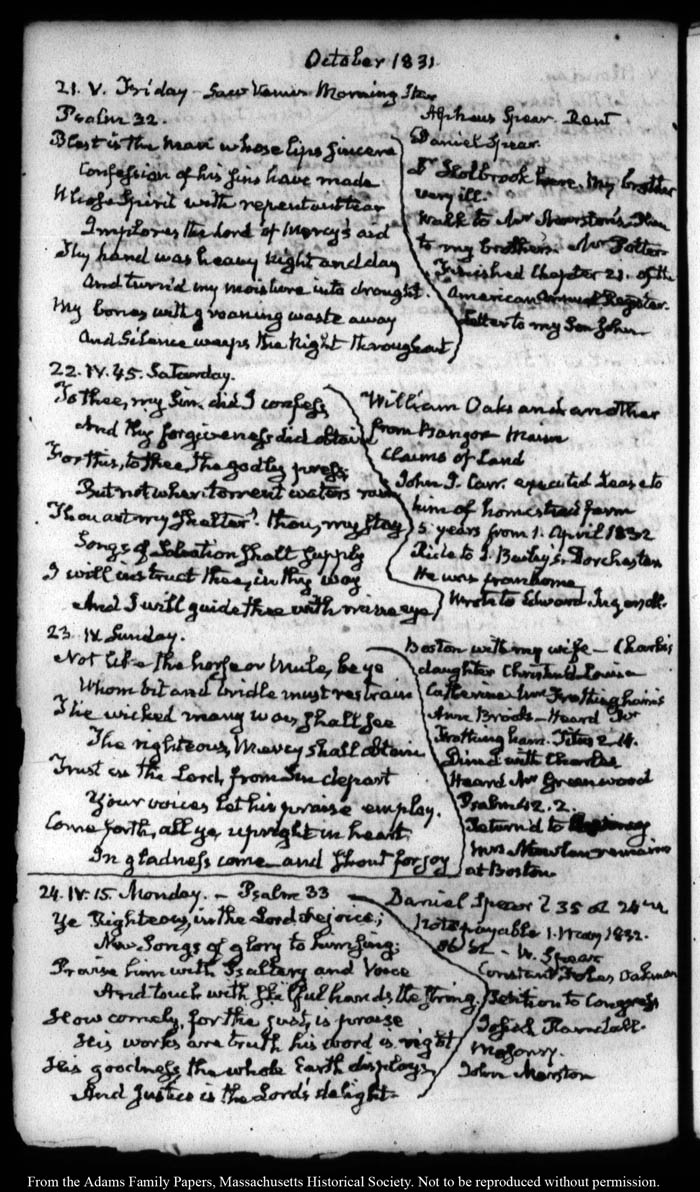 October 1831.
21. V. Friday - Saw Venus Morning Star
Psalm 32.
Blest is the man whose lips sincere
Confession of his sins have made
Whose Spirit with repentant tear
Implores the Lord of Mercy's aid
Thy hand was heavy Night and day
And turn'd my moisture into drought.
My bones with groaning waste away
And Silence weeps the Night throughout
Alpheus Spear. Rent
Daniel Spear.
Dr Holbrook here. My brother
very ill.
Walk to Mr Marston's. Then
to my brother's. Mr Potter
Finished Chapter 21. of the
American Annual Register.
Letter to my Son John
22. IV. 45. Saturday.
To thee, my Sin did I confess,
And thy forgiveness did obtain
For this, to thee, the godly press,
But not when torrent waters rain
Thou art my Shelter! thou, my stay
Songs of Salvation shalt supply
I will instruct thee, in thy way
And I will guide thee with mine eye
William Oaks and another
from Bangor Maine
Claims of Land
John J. Carr. executed Lease to
him of homestead farm
5 years from 1. April 1832
Ride to J. Bailey's. Dorchester
He was from home
Wrote to Edward Ingersoll.
23. IV Sunday.
Not like the horse or Mule, be ye
Whom bit and bridle must restrain
The wicked many woes shall see
The righteous, Mercy shall obtain
Trust in the Lord, from Sin depart
Your voices let his praise employ.
Come forth, all ye upright in heart
In gladness come and shout for joy
Boston with my wife - Charles's
daughter Christen'd Louisa
Catherine Mr Frothingham's
Ann Brooks - Heard Mr
Frothingham. Titus 2. 14.
Dined with Charles
Heard Mr Greenwood
Psalm 42. 2.
Return'd to
Mrs Nowlan remains
at Boston
24. IV. 15. Monday. - Psalm 33
Ye Righteous, in the Lord rejoice;
New Songs of glory to him sing;
Praise him with Psaltery and Voice
And touch with skilful hands the string.
How comely, for the just, is praise
His works are truth his word is right
His goodness the whole Earth displays
And Justice is the Lord's delight.
Daniel Spear 35
Note payable 1. May 1832.
W. Spear
Constant Fobes Oakman
Petition to Congress
Josiah Randall.
Masonry.
John Marston
From the Adams Family Papers, Massachusetts Historical Society. Not to be reproduced without permission.